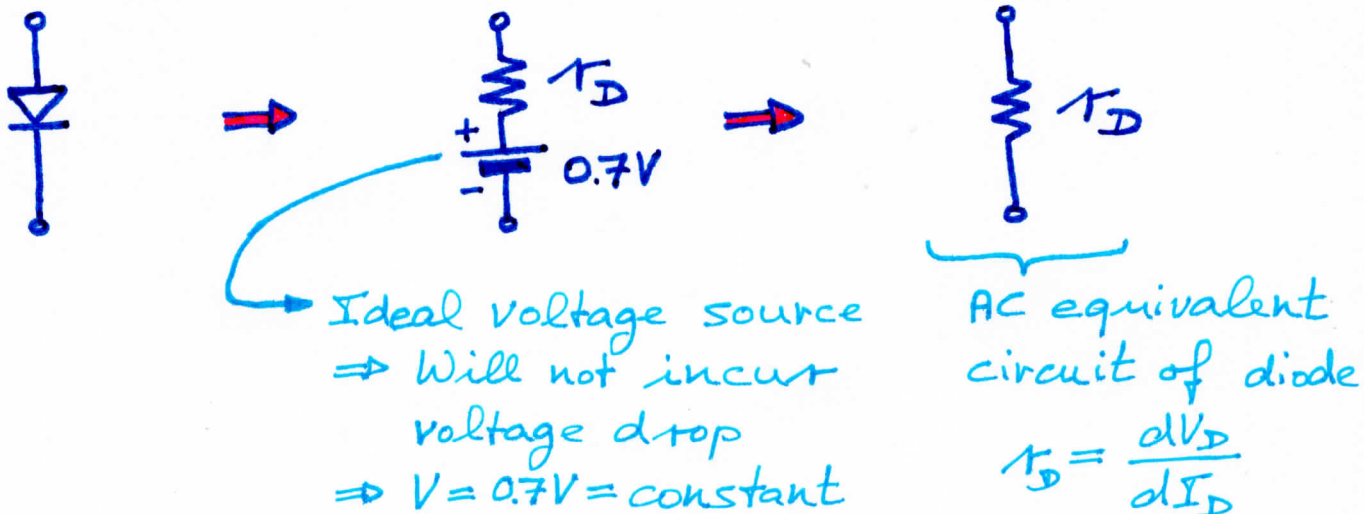 r_D
+
0.7V
-
r_D
Ideal voltage source
⇒ Will not incur
voltage drop
⇒ V = 0.7V = constant
AC equivalent
circuit of diode
r_D = dV_D / dI_D